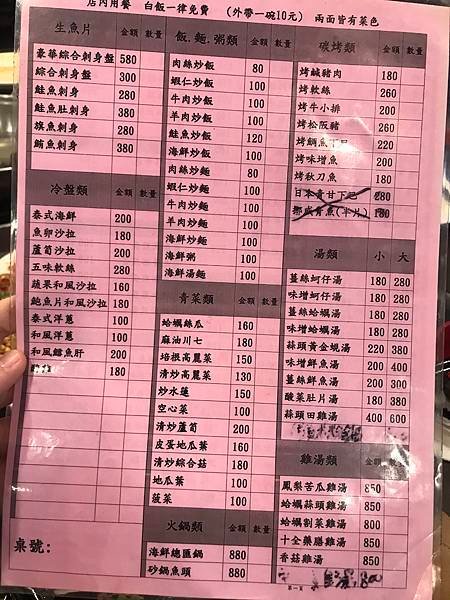 店內用餐 白飯一律免費 (外帶一碗10元) 兩面皆有菜色
生魚片 金額 數量
豪華綜合刺身盤 580
綜合刺身盤 300
鮭魚刺身 280
鮭魚肚刺身 380
旗魚刺身 280
鮪魚刺身 380
冷盤類 金額 數量
泰式海鮮 200
魚卵沙拉 180
蘆筍沙拉 200
五味軟絲 280
蔬果和風沙拉 160
鮑魚片和風沙拉 180
泰式洋蔥 100
和風洋蔥 100
和風鱈魚肝 200
180
桌號:
飯.麵.粥類 金額 數量
肉絲炒飯 80
蝦仁炒飯 100
牛肉炒飯 100
羊肉炒飯 100
鮭魚炒飯 120
海鮮炒飯 100
肉絲炒麵 80
蝦仁炒麵 100
牛肉炒麵 100
羊肉炒麵 100
海鮮炒麵 100
海鮮粥 100
海鮮湯麵 100
青菜類 金額 數量
蛤蠣絲瓜 160
麻油川七 180
培根高麗菜 150
清炒高麗菜 130
炒水蓮 150
空心菜 100
清炒蘆筍 200
皮蛋地瓜葉 160
清炒綜合菇 180
地瓜葉 100
菠菜 100
火鍋類 金額 數量
海鮮總匯鍋 880
砂鍋魚頭 880
碳烤類 金額 數量
烤鹹豬肉 180
烤軟絲 260
烤牛小排 200
烤松阪豬 260
烤鯛魚下巴 220
烤味噌魚 200
烤秋刀魚 180
日本青甘下巴 280
挪威青魚(半片) 180
湯類 小 大
薑絲蚵仔湯 180 280
味增蚵仔湯 180 280
薑絲蛤蠣湯 180 280
味增蛤蠣湯 180 280
蒜頭黃金蜆湯 220 380
味增鮮魚湯 200 400
薑絲鮮魚湯 200 300
酸菜肚片湯 180 380
蒜頭田雞湯 400 600
雞湯類 金額 數量
鳳梨苦瓜雞湯 850
蛤蠣蒜頭雞湯 850
蛤蠣剝菜雞湯 800
十全藥膳雞湯 850
香菇雞湯 850
第一頁